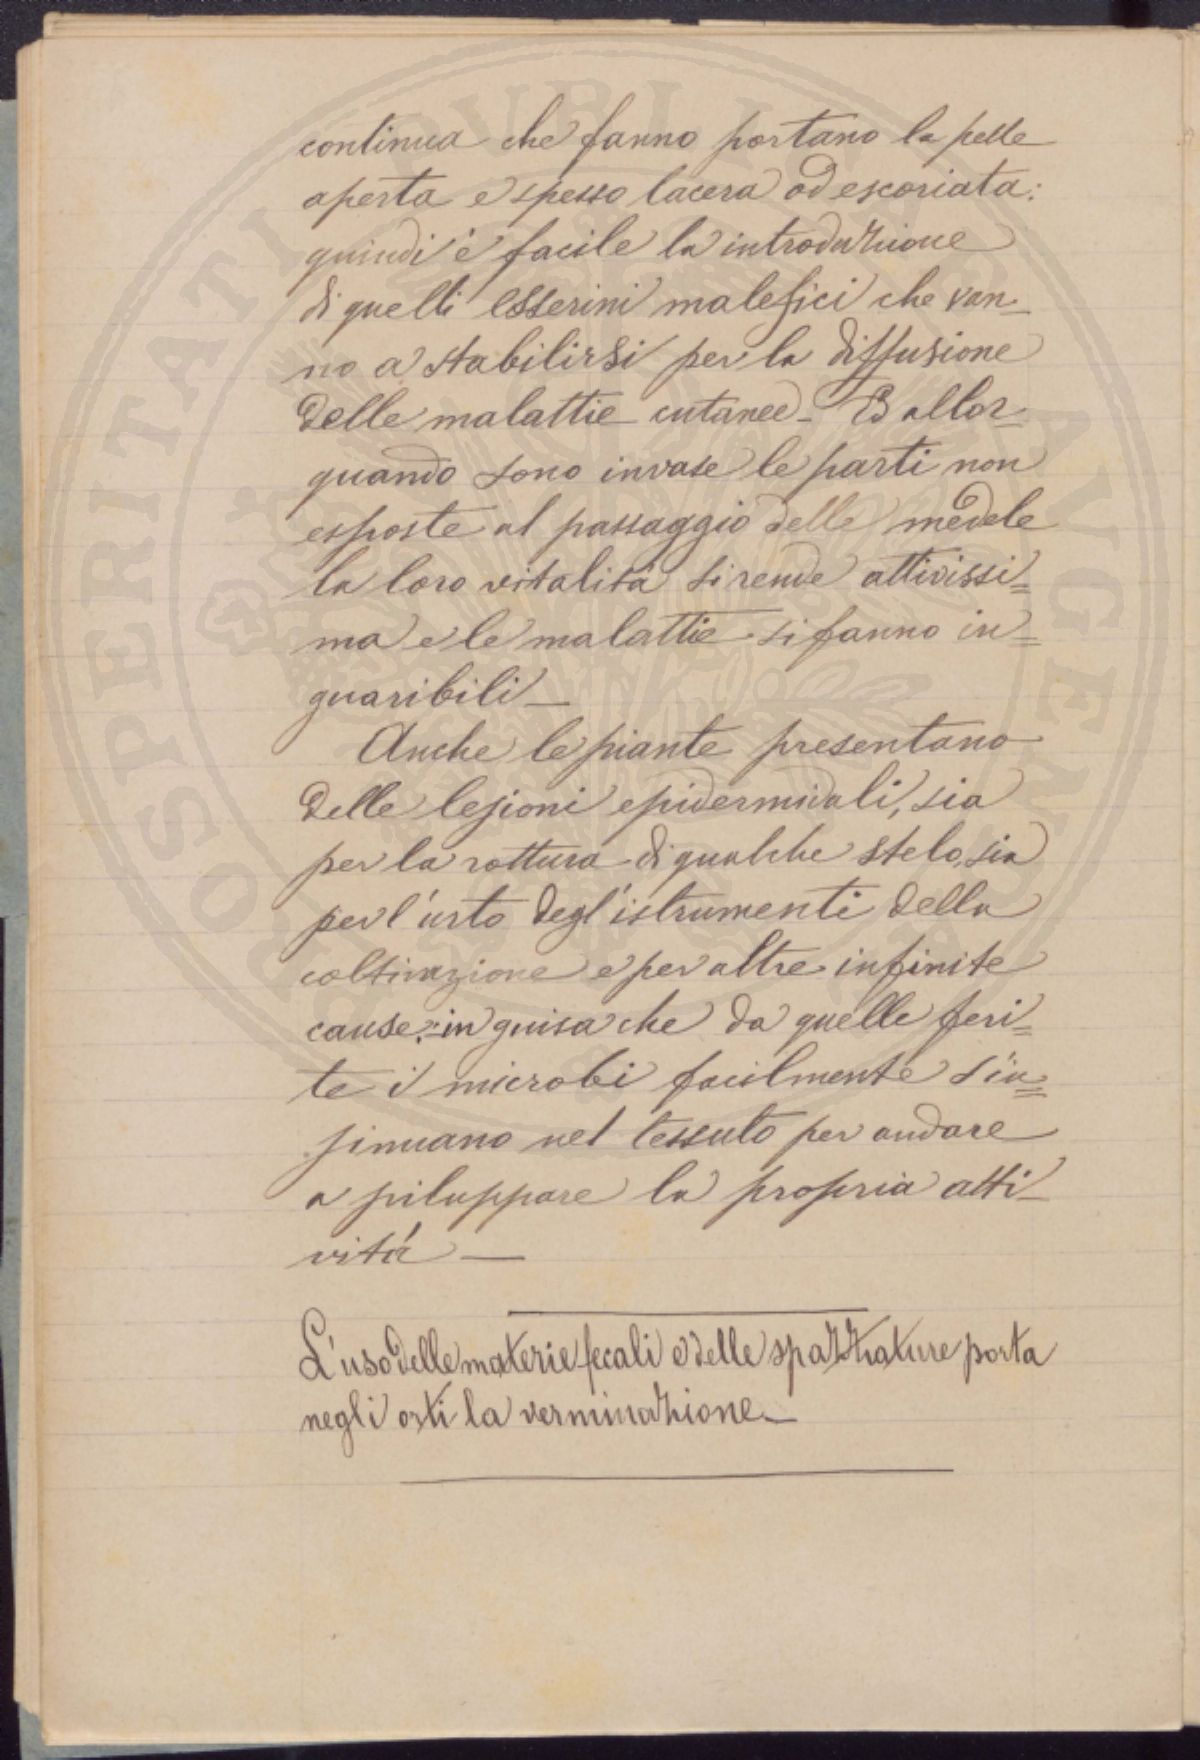 continua che fanno portano la pelle
aperta e spesso lacera od escoriata:
quindi è facile la introduzione
di quelli esserini malefici che van-
no a stabilirsi per la diffusione
delle malattie cutanee_ E allor-
quando sono invase le parti non
esposte al passaggio delle medele
la loro vitalità si rende attivissi=
ma e le malattie si fanno in=
guaribili_
Anche le piante presentano
delle lesioni epidermidali, sia
per la rottura di qualche stelo, sia
per l'urto degl'istrumenti della
coltivazione e per altre infinite
cause; in guisa che da quelle feri=
te i microbi facilmente s'in=
sinuano nel tessuto per andare
a sviluppare la propria atti-
vità_
L'uso delle materie fecali e delle spazzature porta
negli orti la verminazione_
PROSPERITATI PVBLICAE AVGENDAE